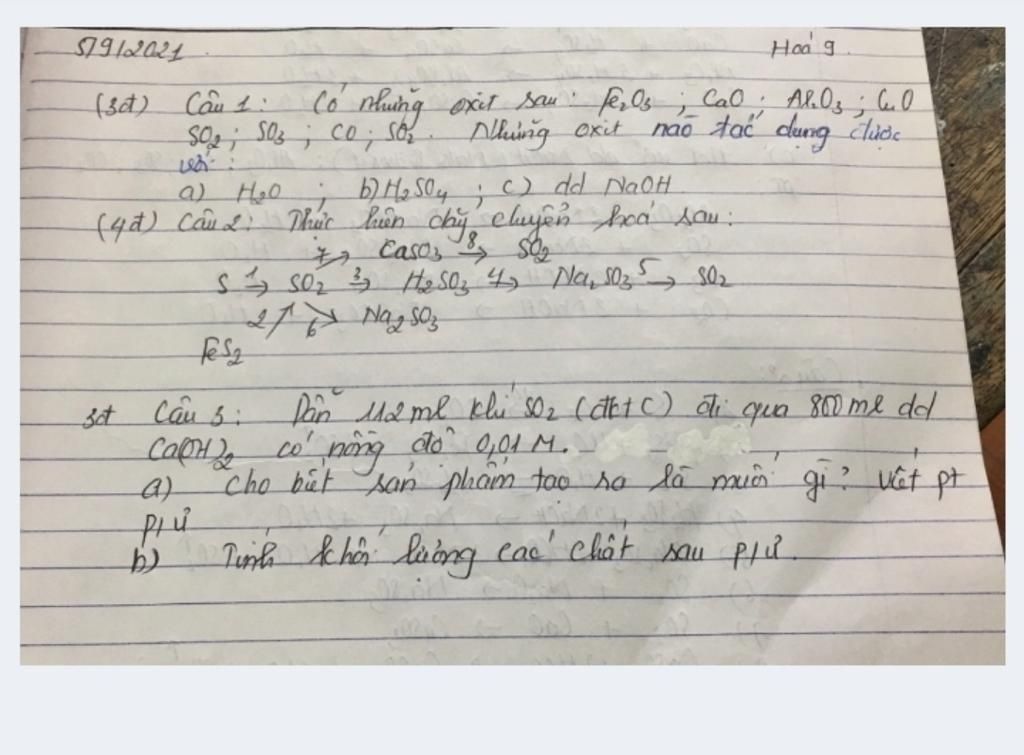 5/9/2021 Hoá 9
(3đ) Câu 1: Có những oxit sau: Fe₂O₃; CaO; Al₂O₃; CuO
SO₂; SO₃; CO; SO₂. Những oxit nào tác dụng được
với:
a) H₂O; b) H₂SO₄; c) dd NaOH
(4đ) Câu 2: Thực hiện chỹ chuyển hoá sau:
7→ CaSO₃ 8→ SO₂
S 1→ SO₂ 3→ H₂SO₃ 4→ Na₂SO₃ 5→ SO₂
2↗ 6↘ Na₂SO₃
FeS₂
3đ Câu 3: Dẫn 112 ml khí SO₂ (đktC) đi qua 800 ml dd
Ca(OH)₂ có nồng độ 0,01 M.
a) Cho biết sản phẩm tạo ra là muối gì? Viết pt
p/ư
b) Tính khối lượng các chất sau p/ư.